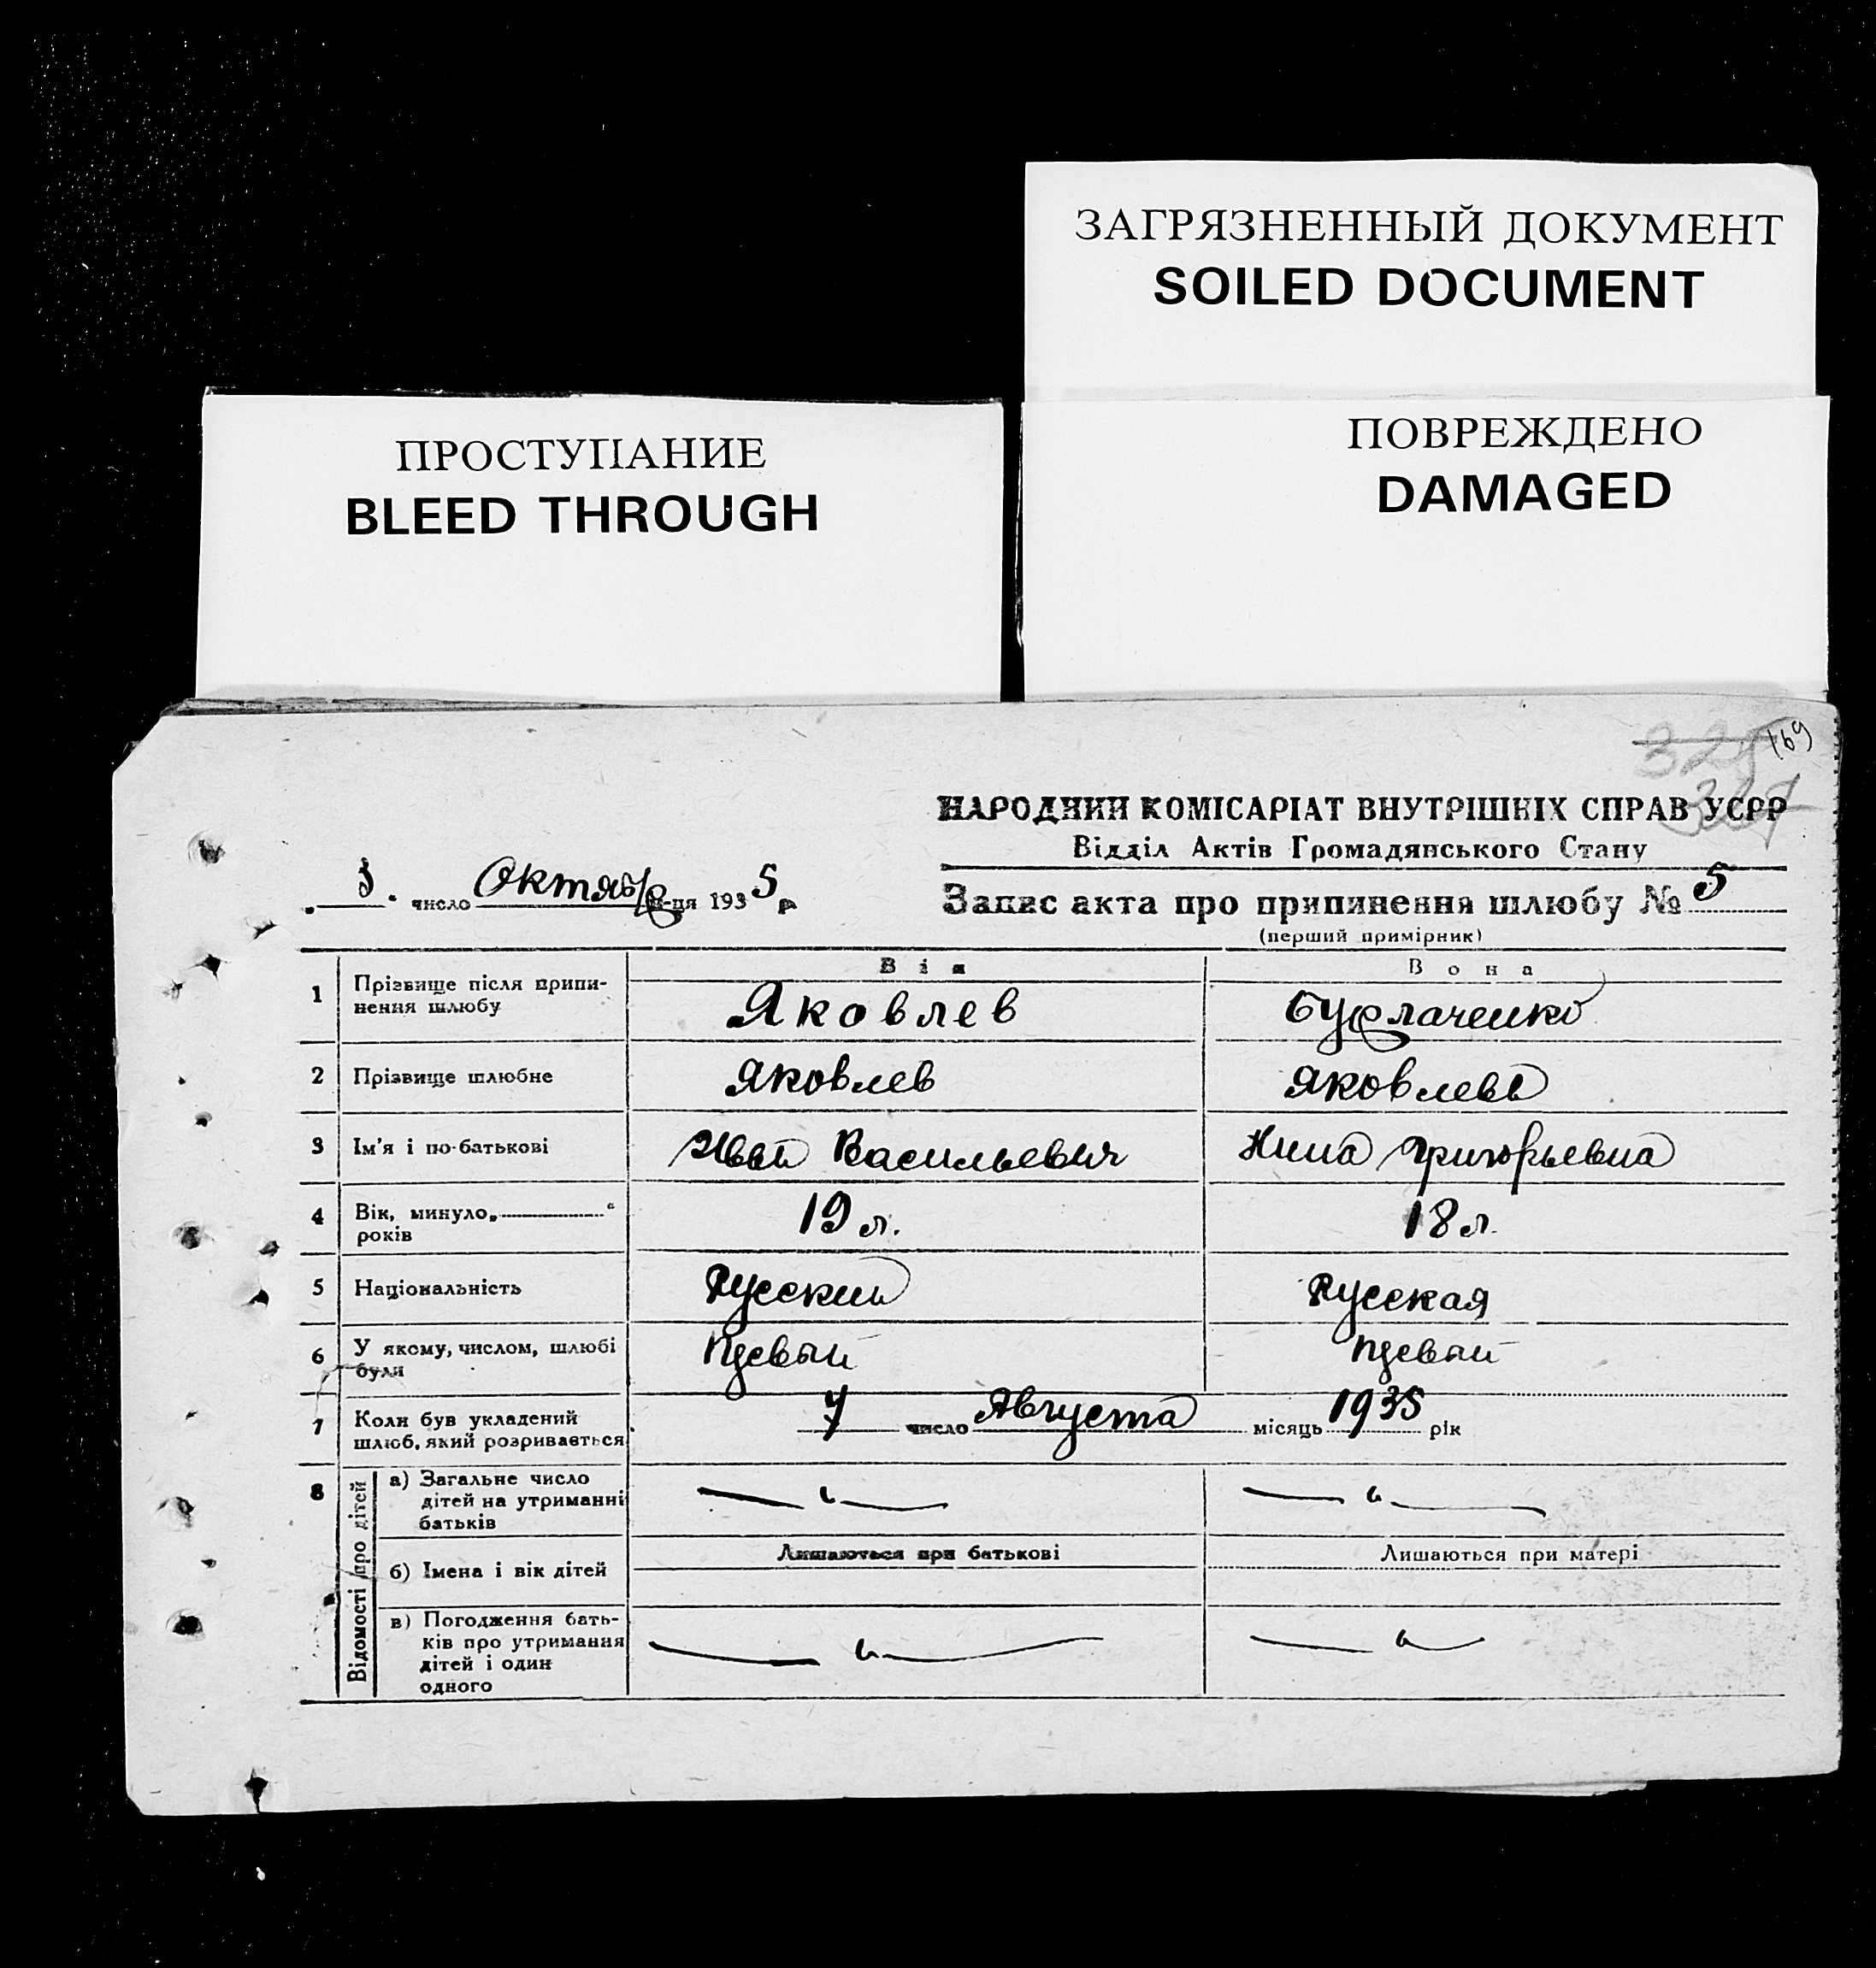 ЗАГРЯЗНЕННЫЙ ДОКУМЕНТ
SOILED DOCUMENT
ПРОСТУПАНИЕ
BLEED THROUGH
ПОВРЕЖДЕНО
DAMAGED
169
325
327
НАРОДНИЙ КОМІСАРІАТ ВНУТРІШНІХ СПРАВ УСРР
Відділ Актів Громадянського Стану
3. число Октября м-ця 1935 р.
Запис акта про припинення шлюбу № 5
(перший примірник)
Він Вона
1 Прізвище після припи- Яковлев Бурлаченко
нення шлюбу
2 Прізвище шлюбне Яковлев Яковлева
3 Ім'я і по-батькові Иван Васильевич Нина Григорьевна
4 Вік, минуло „ “ 19 л. 18 л.
років
5 Національність Русский Русская
6 У якому, числом, шлюбі Первый Первый
були
7 Коли був укладений 7 число Августа місяць 1935 рік
шлюб, який розривається
8 Відомості про дітей
а) Загальне число
дітей на утриманні
батьків
Лишаються при батькові Лишаються при матері
б) Імена і вік дітей
в) Погодження бать-
ків про утримання
дітей і один
одного